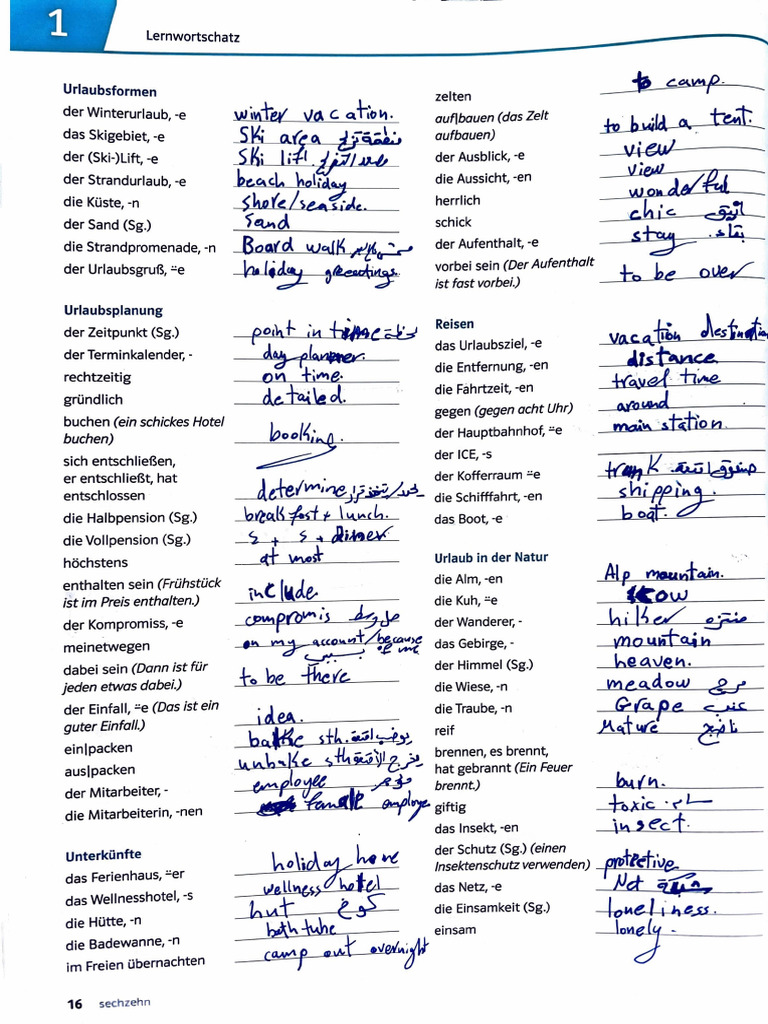 1
Lernwortschatz
Urlaubsformen
der Winterurlaub, -e winter vacation.
das Skigebiet, -e Ski area
der (Ski-)Lift, -e Ski lift.
der Strandurlaub, -e beach holiday
die Küste, -n shore/seaside.
der Sand (Sg.) Sand
die Strandpromenade, -n Board walk
der Urlaubsgruß, ⸚e holiday greeotings.
Urlaubsplanung
der Zeitpunkt (Sg.) point in time
der Terminkalender, - day planner.
rechtzeitig on time.
gründlich detailed.
buchen (ein schickes Hotel
buchen) booking.
sich entschließen,
er entschließt, hat
entschlossen determine
die Halbpension (Sg.) breakfast + lunch.
die Vollpension (Sg.) s + s + dinner
höchstens at most
enthalten sein (Frühstück
ist im Preis enthalten.) include.
der Kompromiss, -e compromis
meinetwegen on my account/because of me
dabei sein (Dann ist für
jeden etwas dabei.) to be there
der Einfall, ⸚e (Das ist ein
guter Einfall.) idea.
ein|packen sth.
aus|packen unbake sth
der Mitarbeiter, - employee
die Mitarbeiterin, -nen employe
Unterkünfte
das Ferienhaus, ⸚er holiday home
das Wellnesshotel, -s wellness hotel
die Hütte, -n hut كوخ
die Badewanne, -n bath tube
im Freien übernachten camp out overnight
16 sechzehn
zelten to camp.
auf|bauen (das Zelt
aufbauen) to build a tent.
der Ausblick, -e view
die Aussicht, -en view
herrlich wonderful
schick chic أنيق
der Aufenthalt, -e stay بقاء
vorbei sein (Der Aufenthalt
ist fast vorbei.) to be over
Reisen
das Urlaubsziel, -e vacation destination
die Entfernung, -en distance
die Fahrtzeit, -en travel time
gegen (gegen acht Uhr) around
der Hauptbahnhof, ⸚e main station.
der ICE, -s
der Kofferraum ⸚e trank
die Schifffahrt, -en shipping.
das Boot, -e boat.
Urlaub in der Natur
die Alm, -en Alp mountain.
die Kuh, ⸚e Kow
der Wanderer, - hiker
das Gebirge, - mountain
der Himmel (Sg.) heaven.
die Wiese, -n meadow مرج
die Traube, -n Grape عنب
reif Mature ناضج
brennen, es brennt,
hat gebrannt (Ein Feuer
brennt.) burn.
giftig toxic. سام
das Insekt, -en insect.
der Schutz (Sg.) (einen
Insektenschutz verwenden) protective
das Netz, -e Net شبكة
die Einsamkeit (Sg.) loneliness.
einsam lonely.